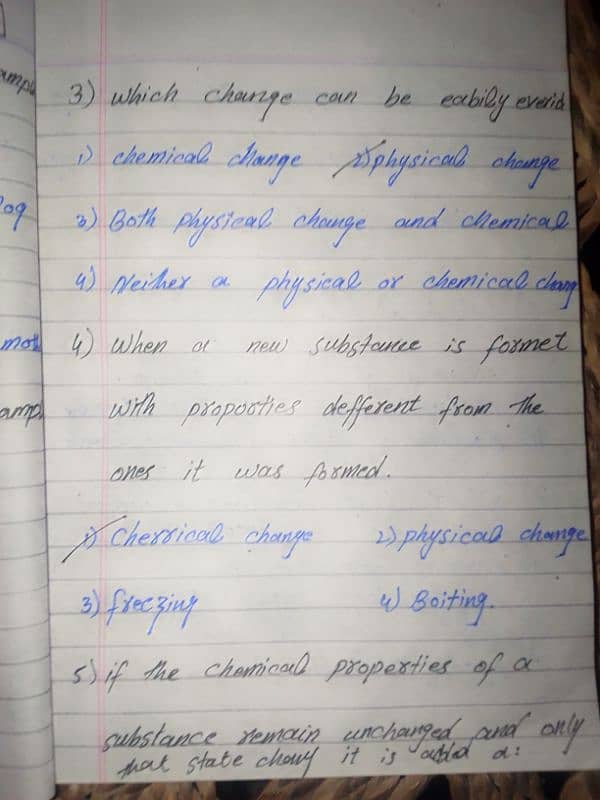 ampl
3) Which change can be eabily everid
1) chemical change 2) physical change
log
3) Both physical change and chemical
4) Neither a physical or chemical chang
mott
4) When a new substance is formet
amp
with proporties defferent from the
ones it was formed.
1) Cherrical change 2) physical change
3) freezing 4) Boiting.
5) if the chemical properties of a
substance remain unchanged and only
that state it is a: